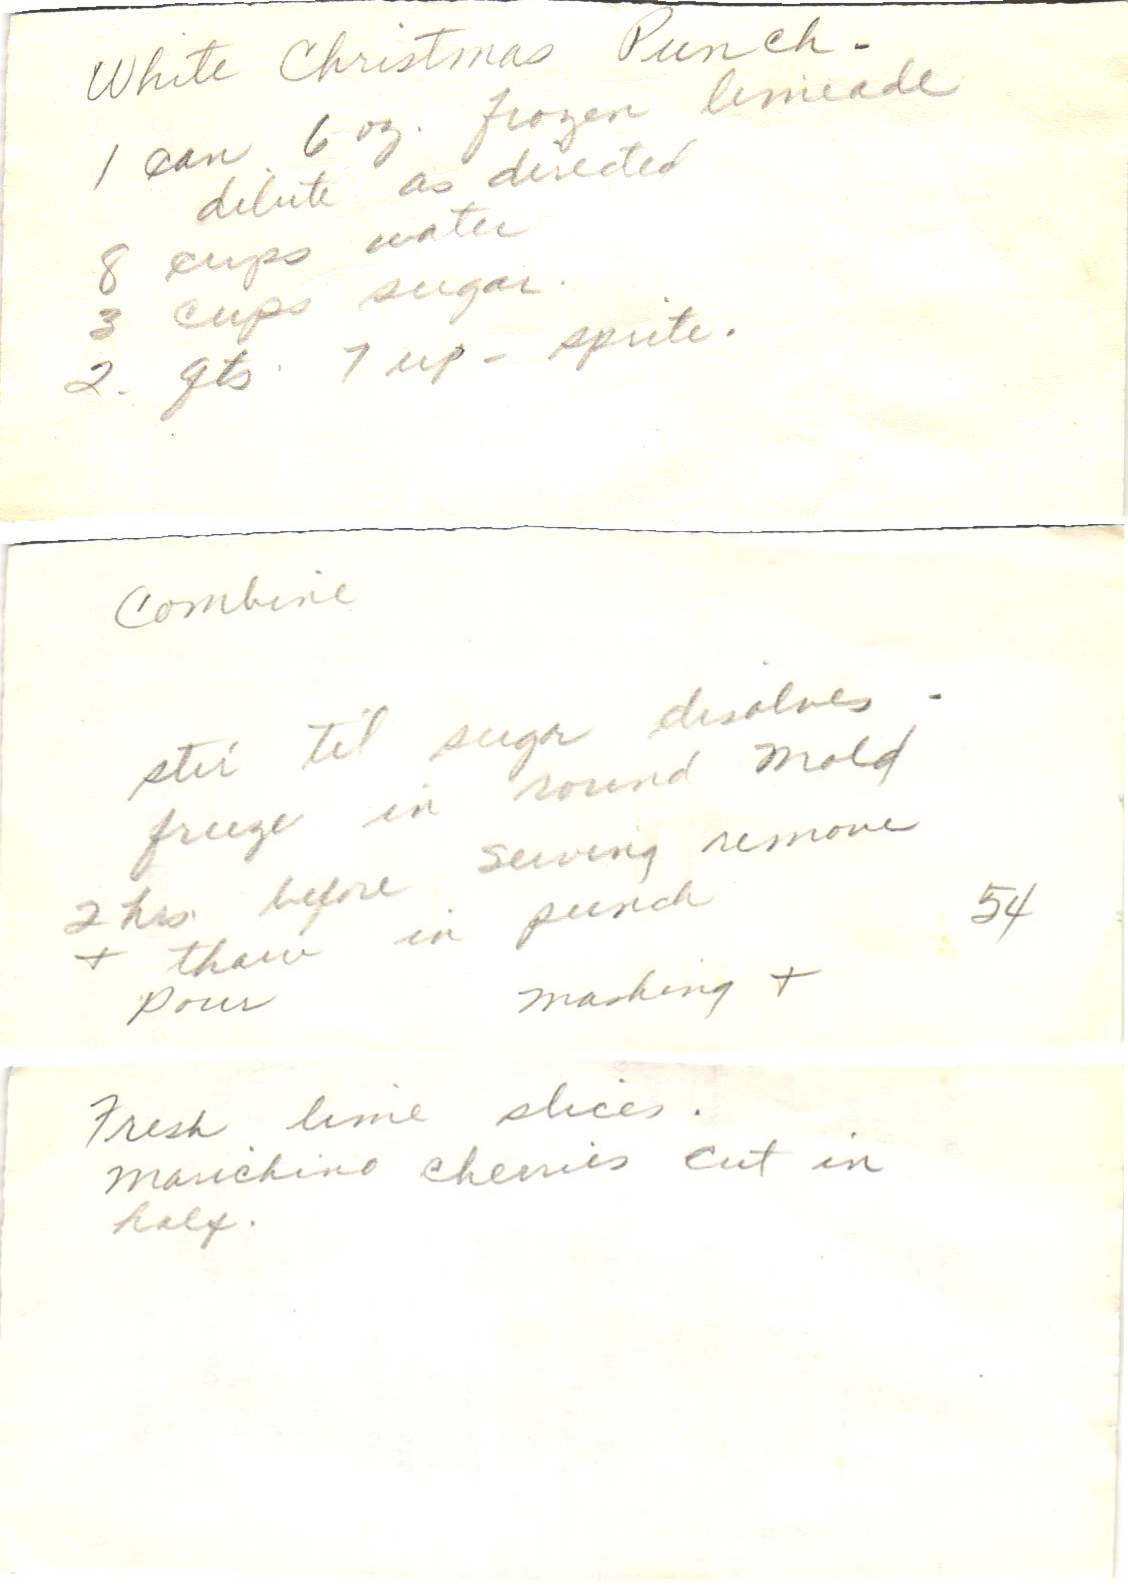 White Christmas Punch -
1 can 6 oz. frozen limeade
dilute as directed
8 cups water
3 cups sugar.
2. qts. 7 up - sprite.
Combine
stir til sugar disolves -
freeze in round mold
2 hrs. before serving remove
+ thaw in punch
54
Pour mashing +
Fresh lime slices.
Marichino cherries cut in
half.